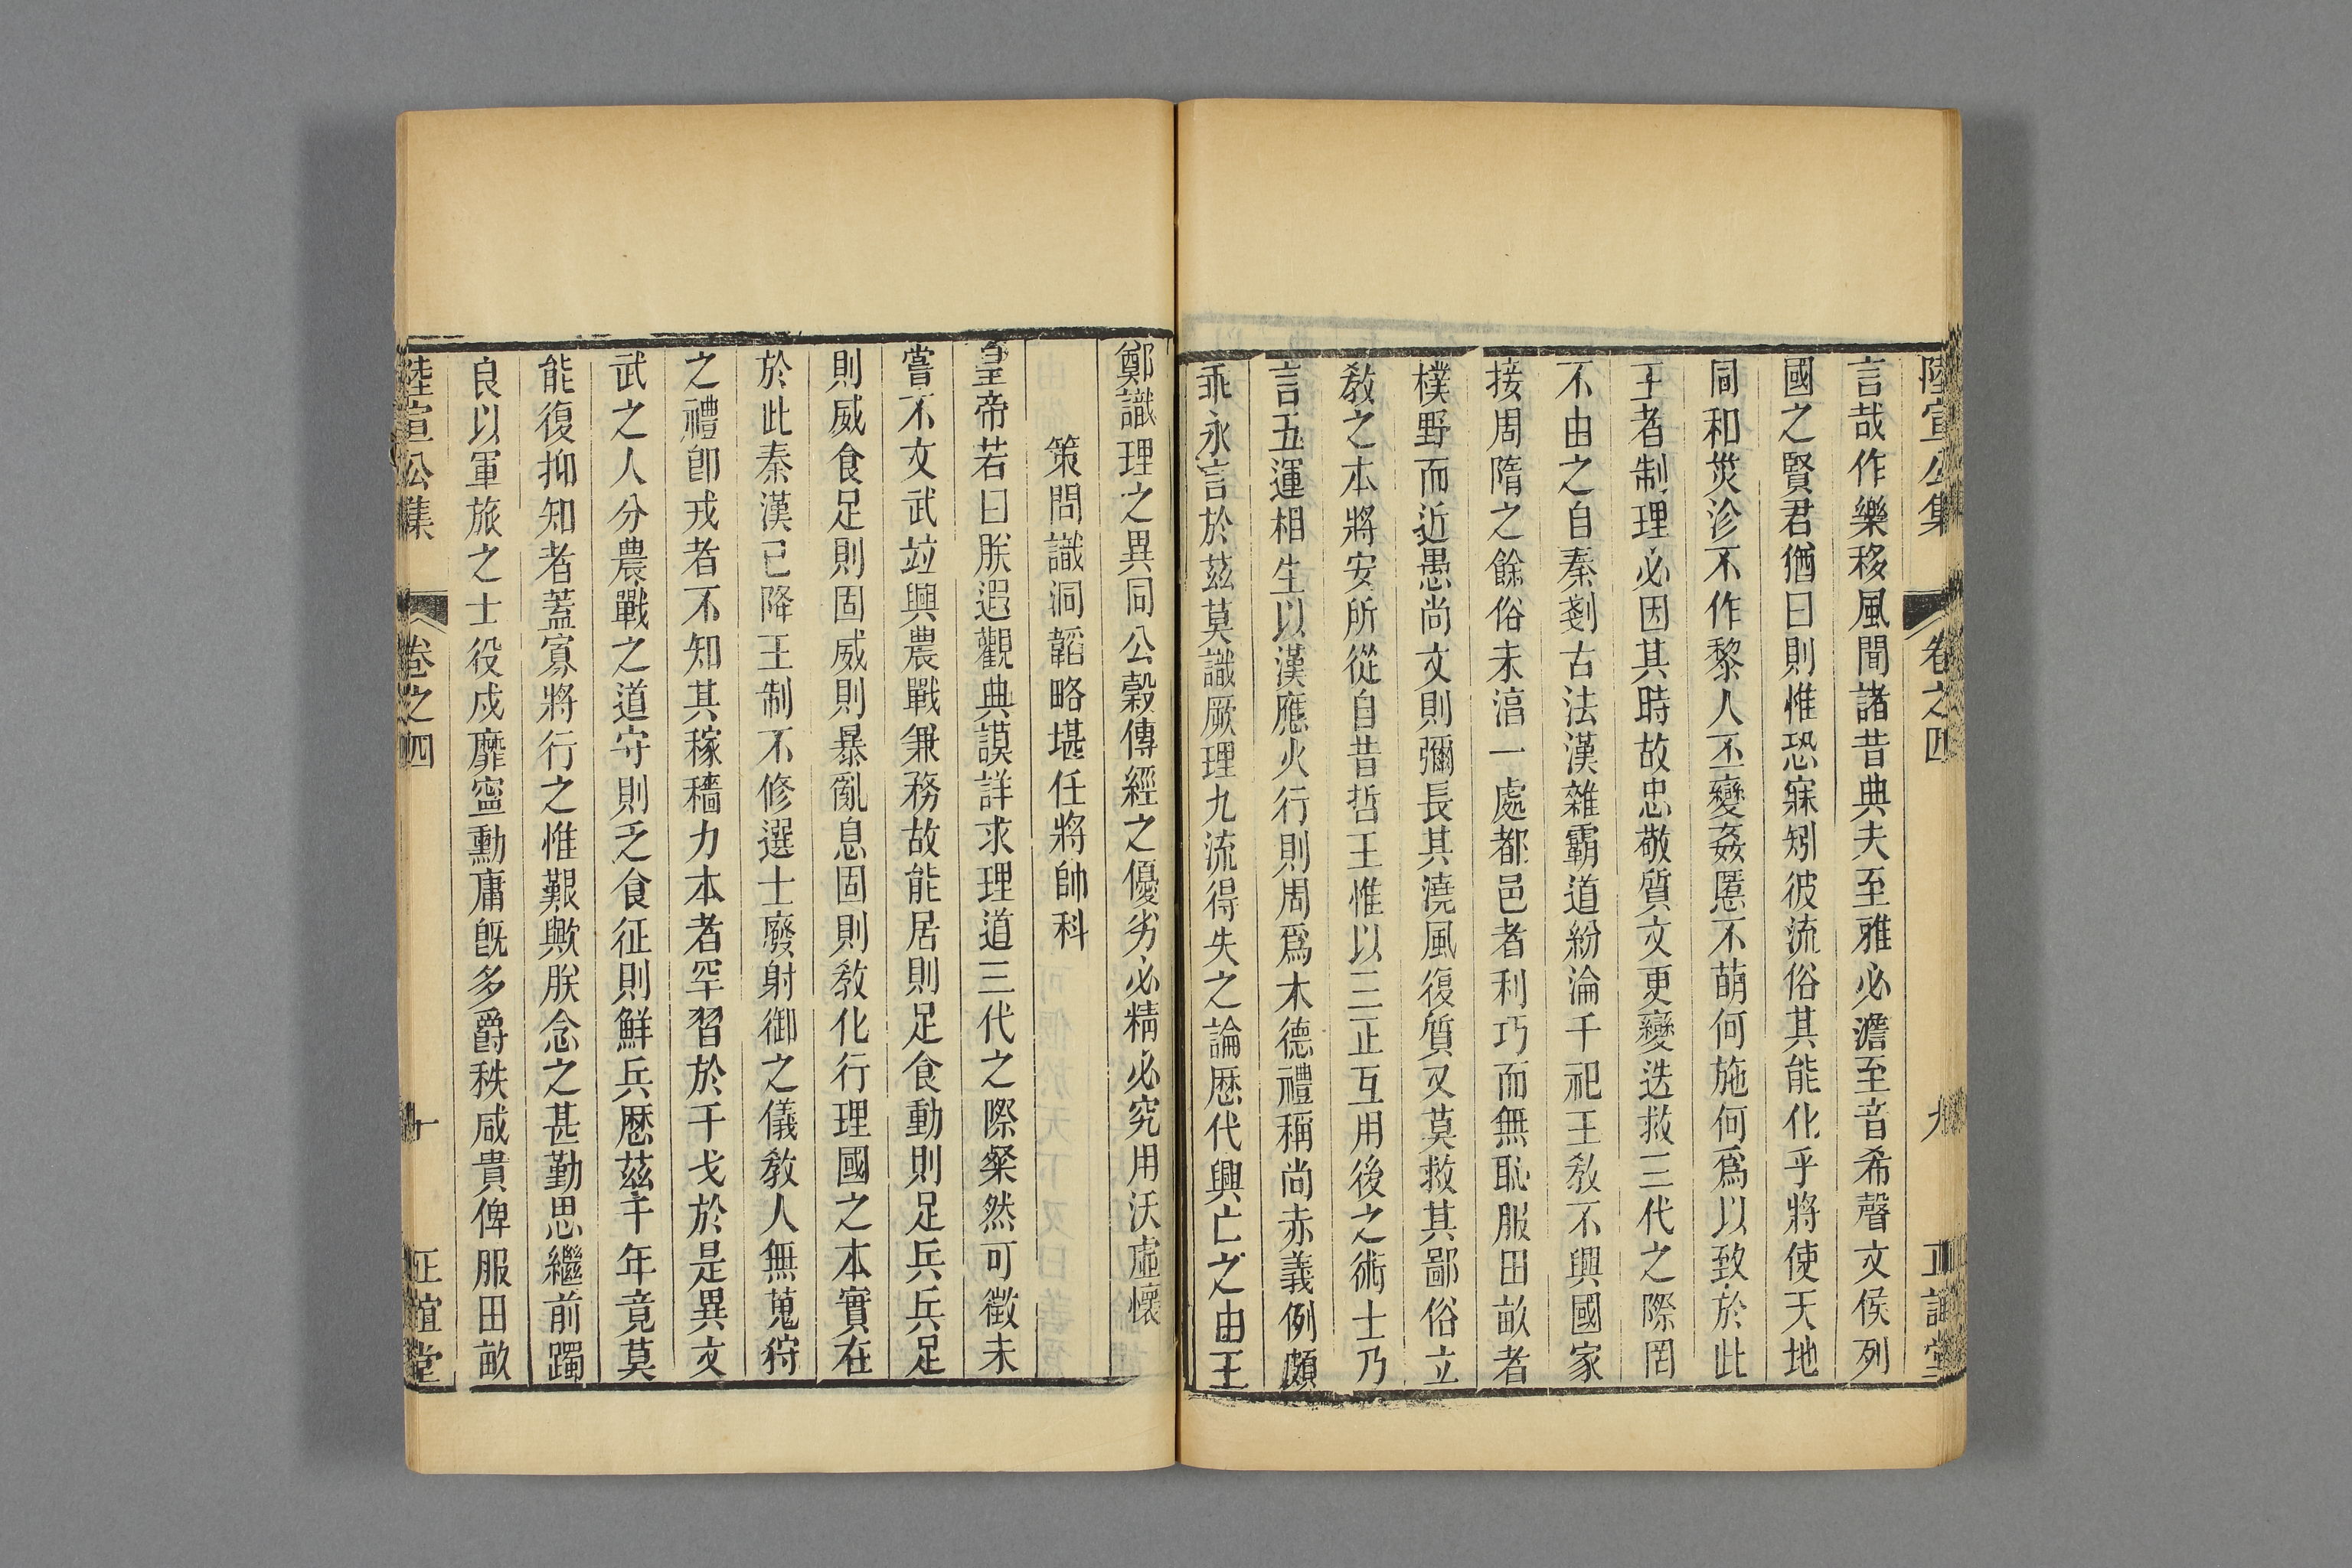 陸宣公集 卷之四 九 正誼堂
言哉作樂移風聞諸昔典夫至雅必澹至音希聲文侯列
國之賢君猶曰則惟恐寐矧彼流俗其能化乎將使天地
同和災沴不作黎人丕變姦慝不萌何施何爲以致於此
王者制理必因其時故忠敬質文更變迭救三代之際罔
不由之自秦剗古法漢雜霸道紛淪千祀王敎不興國家
接周隋之餘俗未淊一處都邑者利巧而無恥服田畝者
樸野而近愚尚文則彌長其澆風復質又莫救其鄙俗立
敎之本將安所從自昔哲王惟以三正互用後之術士乃
言五運相生以漢應火行則周爲木德禮稱尚赤義例頗
乖永言於茲莫識厥理九流得失之論歷代興亡之由王
鄭識理之異同公穀傳經之優劣必精必究用沃虛懷
策問識洞韜略堪任將帥科
皇帝若曰朕遐觀典謨詳求理道三代之際粲然可徵未
嘗不文武竝興農戰兼務故能居則足食動則足兵兵足
則威食足則固威則暴亂息固則敎化行理國之本實在
於此秦漢已降王制不修選士廢射御之儀敎人無蒐狩
之禮卽戎者不知其稼穡力本者罕習於干戈於是異文
武之人分農戰之道守則乏食征則鮮兵歷茲千年竟莫
能復抑知者蓋寡將行之惟艱歟朕念之甚勤思繼前躅
良以軍旅之士役戍靡寧勳庸旣多爵秩咸貴俾服田畝
陸宣公集 卷之四 十 正誼堂